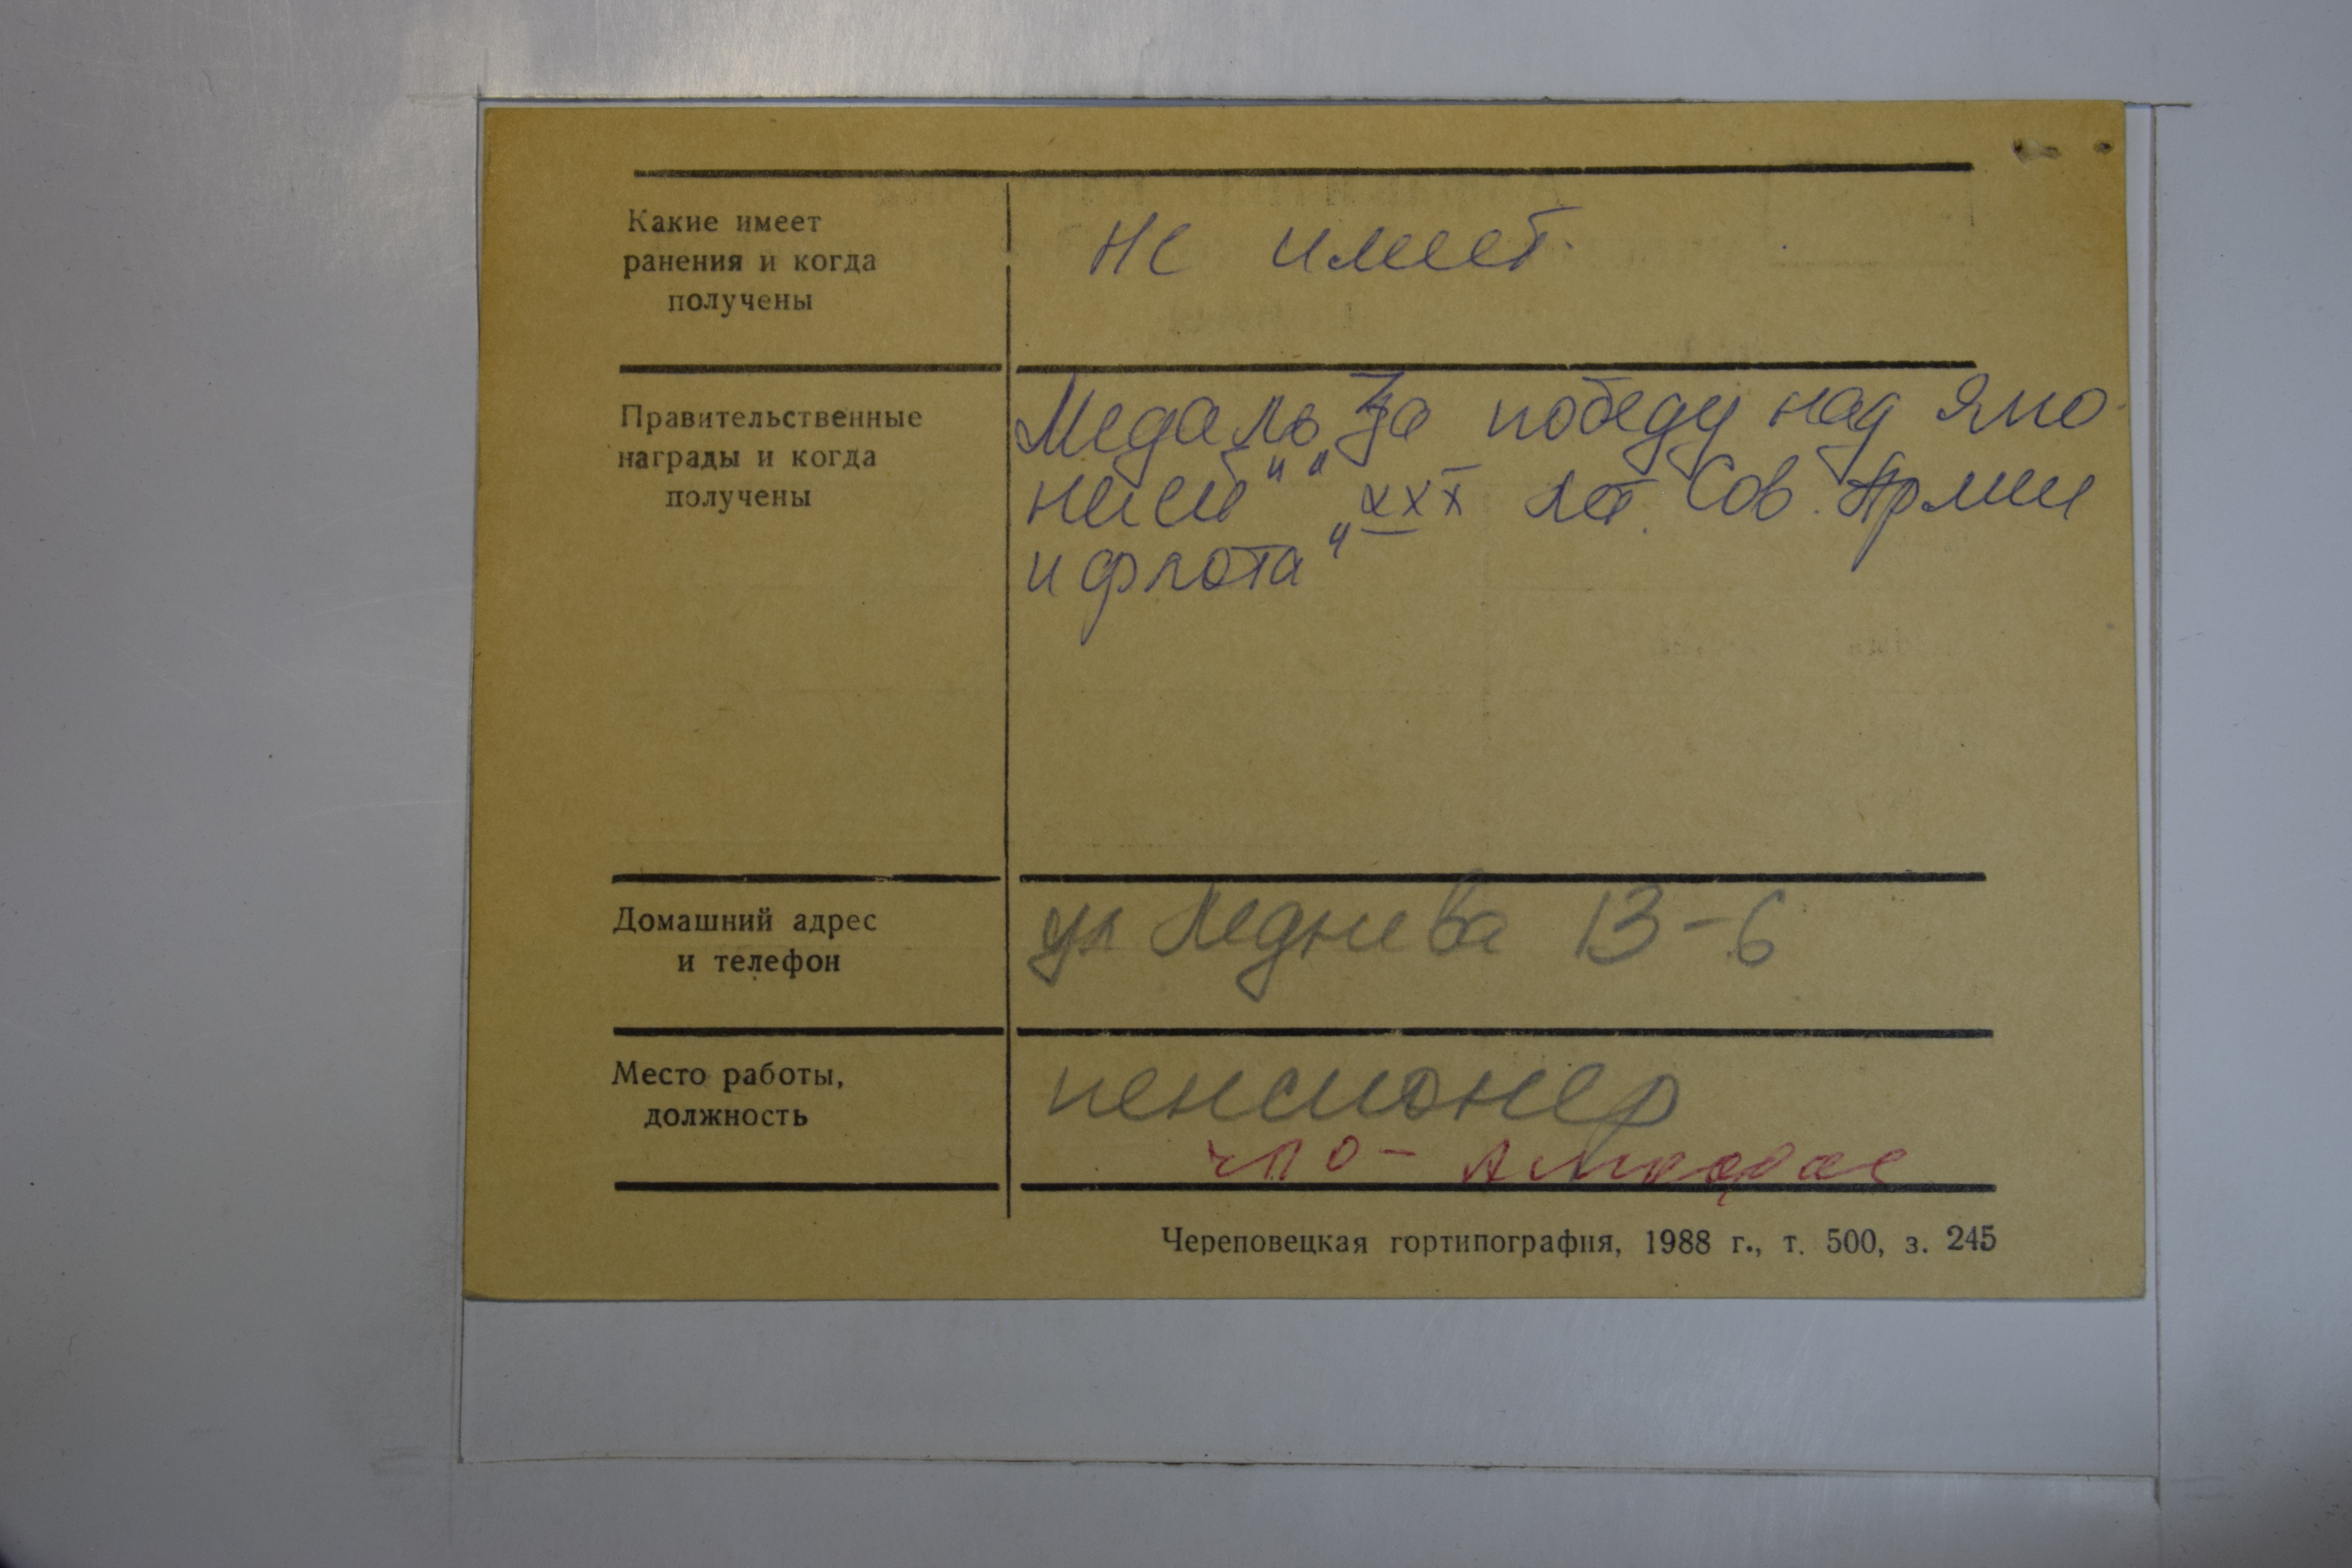 Какие имеет
ранения и когда
получены
не имеет.
Правительственные
награды и когда
получены
Медаль „За победу над Япо
нией" „XXX лет. Сов. Армии
и флота"
Домашний адрес
и телефон
ул Леднева 13-6
Место работы,
должность
пенсионер
ЧПО-
Череповецкая гортипография, 1988 г., т. 500, з. 245